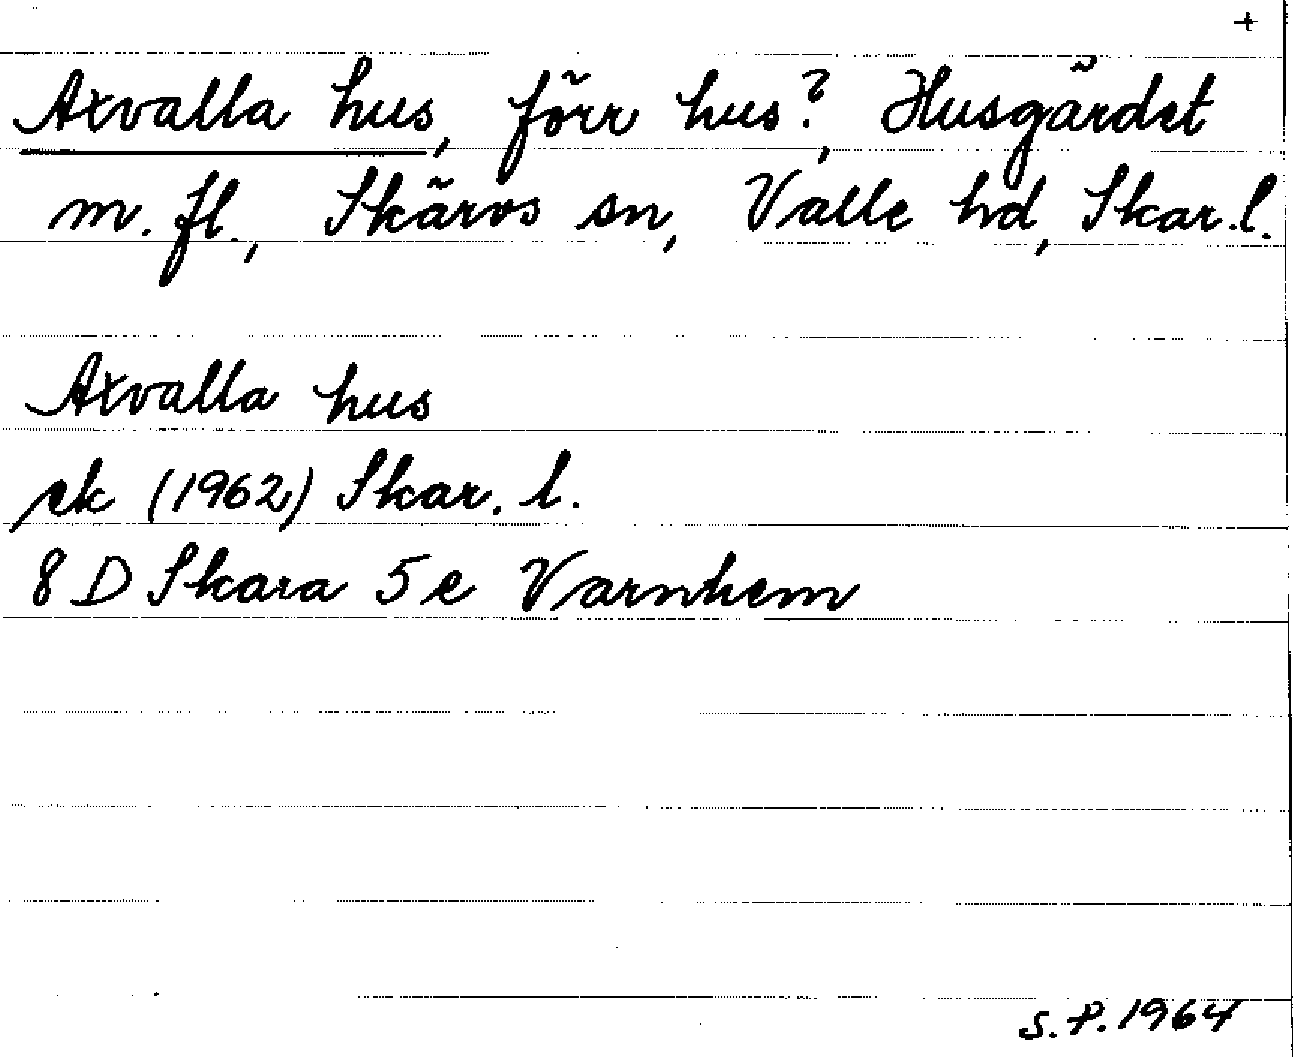 +
Axvalla hus, förr hus?, Husgärdet
m. fl., Skärvs sn, Valle hd, Skar. l.
Axvalla hus
ek (1962) Skar. l.
8 D Skara 5 e Varnhem
S. P. 1964